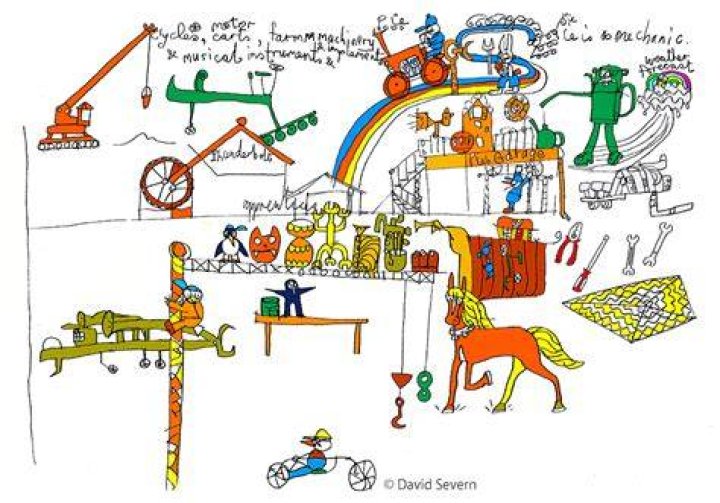 cycles, motor carts, farm machinery
& implements
& musical instruments &
is a mechanic.
weather
forecast
Thunderbolt
Garage
© David Severn